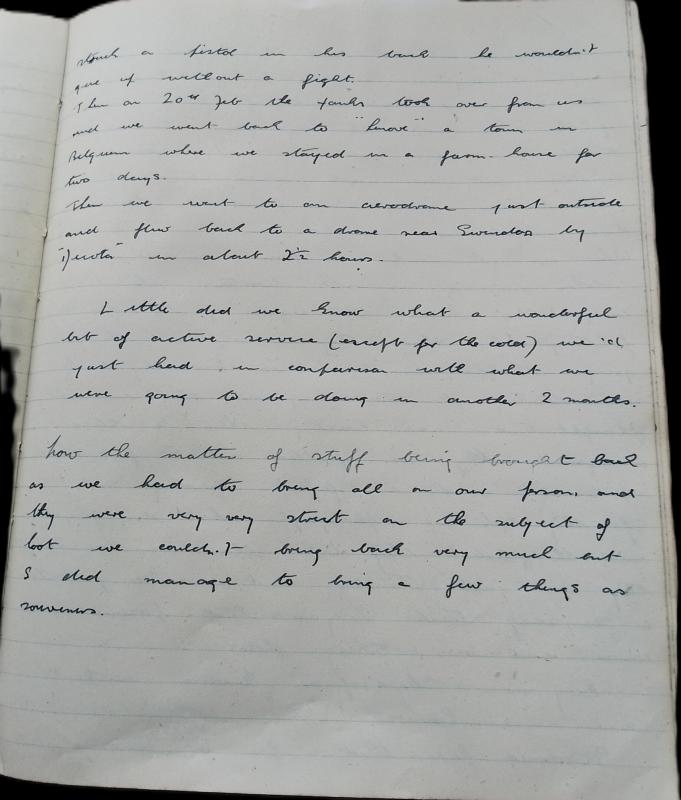 stuck a pistol in his back he wouldn't
give up without a fight.
Then on 20th Feb the yanks took over from us
and we went back to "hnove" a town in
Belguim where we stayed in a farm-house for
two days.
Then we went to an aerodrome just outside
and flew back to a drome near Swindon by
"Dacota" in about 2½ hours.
Little did we know what a wonderful
bit of active service (except for the cold) we'd
just had in comparison with what we
were going to be doing in another 2 months.
how the matter of stuff being brought back
as we had to bring all on our person and
they were very very strict on the subject of
loot we couldn't bring back very much but
I did manage to bring a few things as
souvenirs.